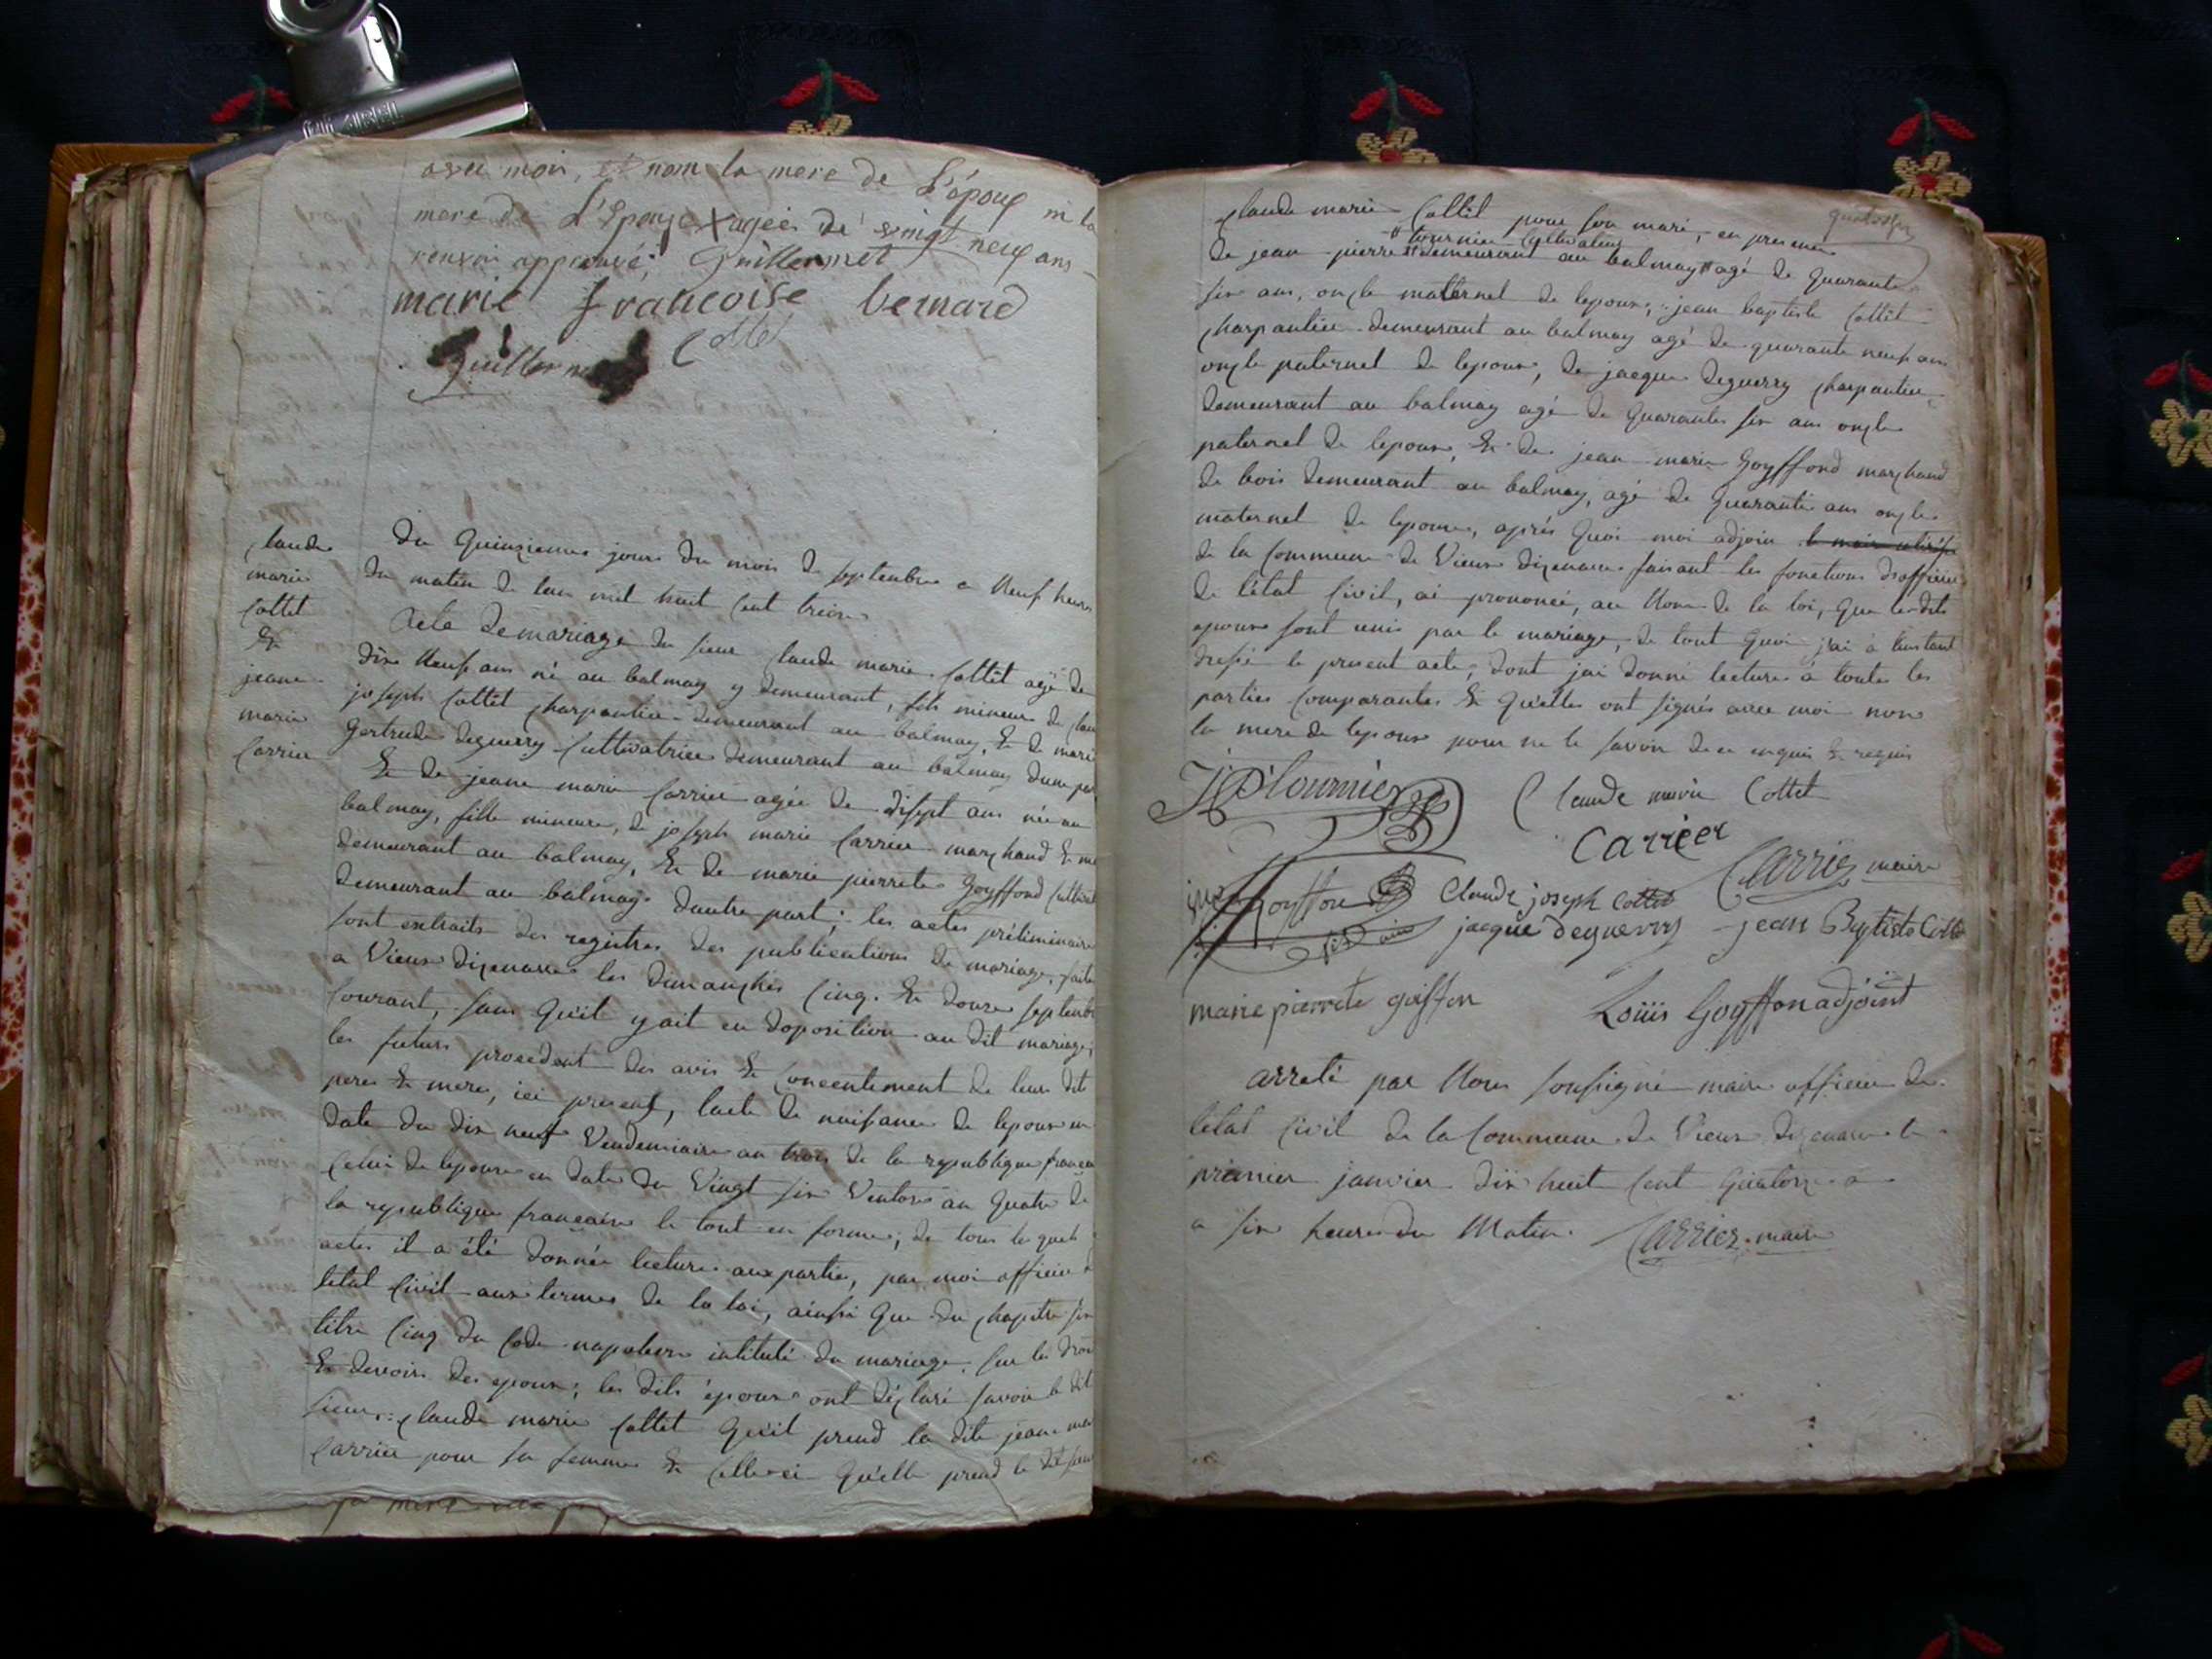 avec moi, et nom la mere de L'époux ni la
mere de L'Epouse X agée de vingt neuf ans
renvoi approuvé; Guillermet
marie francoise bernard
Guillerme
Claude
marie
Cottet
&
jeane
marie
Carrier
Du Quinzieme jour du mois de septembre a Neuf heures
du matin de lan mil huit Cent treize
Acte de mariage du sieur Claude marie Cottet agé de
dix Neuf ans né au balmay y demeurant, fils mineur de Clau
joseph Cottet charpantier demeurant au balmay, & de marie
Gertrude deguerry Cultivatrice demeurant au balmay dune par
& de jeane marie Carrier agée de disept ans née au
balmay, fille mineure, de joseph marie Carrier marchand & m
demeurant au balmay, & de marie pierrete Goyffond Cultivat
demeurant au balmay dautre part; les actes préliminaire
sont extraits des registres des publications de mariage, faite
a Vieux dizenave les dimanches Cinq & douze septemb
Courant, sans Qu'il y ait eu doposition au dit mariage,
les futurs procedent des avis & Concentement de leur dit
peres & meres, ici present, lacte de naissance de lepoux en
date du dix neuf Vendemiaire an trois de la republique francai
Celui de lepouse en date du Vingt six Ventose an Quatre de
la republique francaise le tout en forme; de tous les quels
actes il a été donnée lecture aux partie, par moi officier d
letat Civil aux termes de la loi, ainssi Que du chapitre six
titre Cinq du Code napoleon intitulé du mariage sur les droit
& devoirs des epoux; les dits époux ont déclaré savoir le dit
sieur Claude marie Cottet Qu'il prend la dite jeane mar
Carrier pour sa femme & Celle-ci Qu'elle prend le dit sieur
Claude marie Cottet pour son mari, en presence
tournier Cultivateur
de jean pierre demeurant au balmay agé de Quarante
six ans, oncle maternel de lepoux, jean baptiste Cottet
charpantier demeurant au balmay agé de quarante neuf ans
oncle paternel de lepoux, de jacque deguerry charpantier
demeurant au balmay agé de Quarante six ans oncle
paternel de lepoux, & de jean marie Goyffond marchand
de bois demeurant au balmay, agé de Quarante ans oncle
maternel de lepouse, après Quoi moi adjoin le maire
de la Commune de Vieux dizenave faisant les fonctions dofficier
de l'état Civil, ai prononcé, au Nom de la loi, Que lesdits
epoux sont unis par le mariage, de tout Quoi j'ai à linstant
dressé le present acte, dont jai donné lecture à toute les
parties Comparantes & Qu'elles ont signés avec moi non
la mere de lepoux pour ne le savoir de ce enquis & requis
JP tournier Claude marie Cottet
Carrier
Goyffon Claude joseph Cottet Carrier maire
jacque deguerry jean Baptiste Cotte
marie pierrete goiffon Loüis Goyffon adjoint
arreté par Nous soussigné maire officier de
letat Civil de la Commune de Vieux dizenave le
premier janvier dix huit Cent Quatorze a
a six heures du Matin. Carrier maire